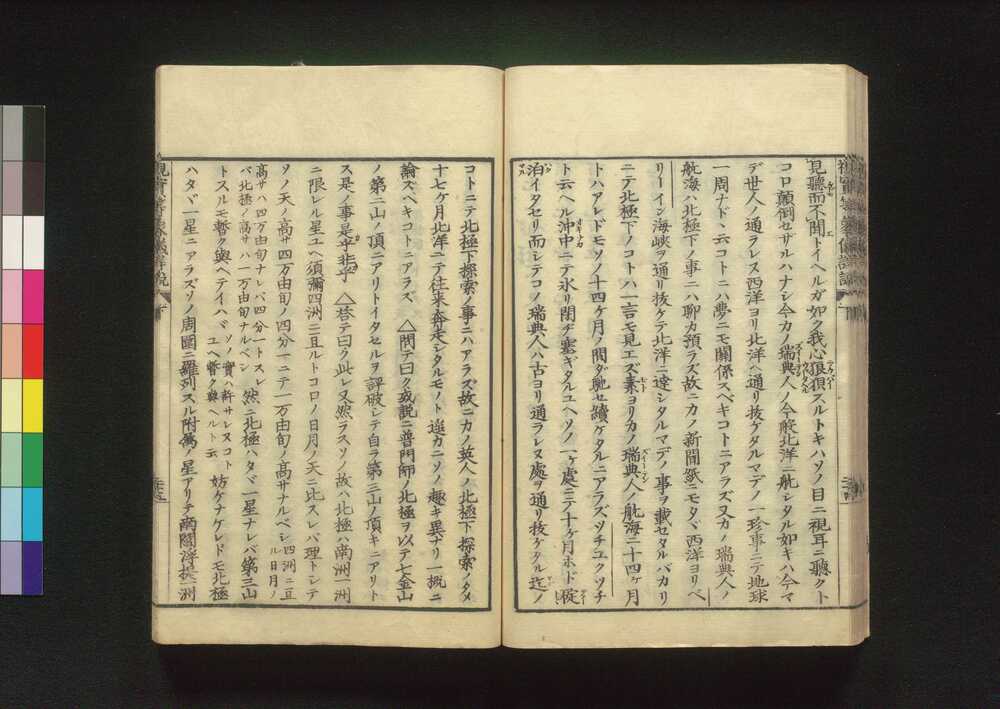 見聽而不聞トイヘルガ如ク我心狼狽スルトキハソノ目ニ視耳ニ聽クト
コロ顛倒セサルハナシ今カノ瑞典人ノ今般北洋ニ航シタル如キハ今マ
デ世人ノ通ラレヌ西洋ヨリ北洋ヘ通リ抜ケタルマデノ一珍事ニテ地球
一周ナドヽ云コトニハ夢ニモ關係スベキコトニアラズ又カノ瑞典人ノ
航海ハ北極下ノ事ニハ聊カ預ラズ故ニカノ新聞紙ニモタヾ西洋ヨリベ
リーイン海峡ヲ通リ抜ケテ北洋ニ達シタルマデノ事ヲ載セタルバカリ
ニテ北極下ノコトハ一言モ見エズ素ヨリカノ瑞典人ノ航海二十四ヶ月
トハアレドモソノ十四ヶ月ノ間ダ馳セ續ケタルニアラズソチユクソチ
ト云ヘル沖中ニテ氷リ閉ヂ塞ギタルユヘソノ一ヶ處ニテ十ヶ月ホド碇
泊イタセリ而シテコノ瑞典人ハ古ヨリ通ラレヌ處ヲ通リ抜ケタル迄ノ
コトニテ北極下探索ノ事ニハアラズ故ニカノ英人ノ北極下探索ノタメ
十七ヶ月北洋ニテ往来奔走シタルモノト遥カニソノ趣キ異ナリ一概ニ
論スベキコトニアラズ △問テ曰ク或説ニ普門師ノ北極ヲ以テ七金山
ノ第三山ノ頂ニアリトイタセルヲ評破シテ自ラ第三山ノ頂キニアリト
ス是ノ事是乎非乎 △答テ曰ク此レ又然ラスソノ故ハ北極ハ南洲一洲
ニ限レル星ユヘ須彌四洲ニ亘ルトコロノ日月ノ天ニ比スレバ理トシテ
ソノ天ノ高サ四万由旬ノ四分一ニテ一万由旬ノ高サナルベシ四洲ニ亘ル日月ノ
高サハ四万由旬ナレバ四分一トスレバ北極ノ高サハ一万由旬ナルベシ 然ニ北極ハタヾ一星ナレバ第三山
トスルモ暫ク與ヘテイハバソノ實ハ許サレヌコトユヘ暫ク與ヘルト云 妨ケナケレドモ北極
ハタヾ一星ニアラズソノ周圍ニ羅列スル附属ノ星アリテ南閻浮提一洲